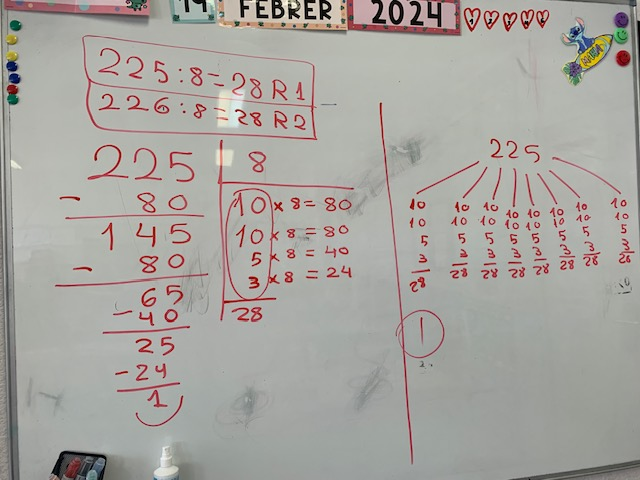 19 FEBRER 2024
225:8=28 R1
226:8=28 R2
225 8
- 80 10 × 8 = 80
145 10 × 8 = 80
- 80 5 × 8 = 40
65 3 × 8 = 24
- 40 28
25
- 24
1
225
10 10 10 10 10 10 10 10
10 10 10 10 10 10 10 10
5 5 5 5 5 5 5 5
3 3 3 3 3 3 3 3
28 28 28 28 28 28 28 28
1